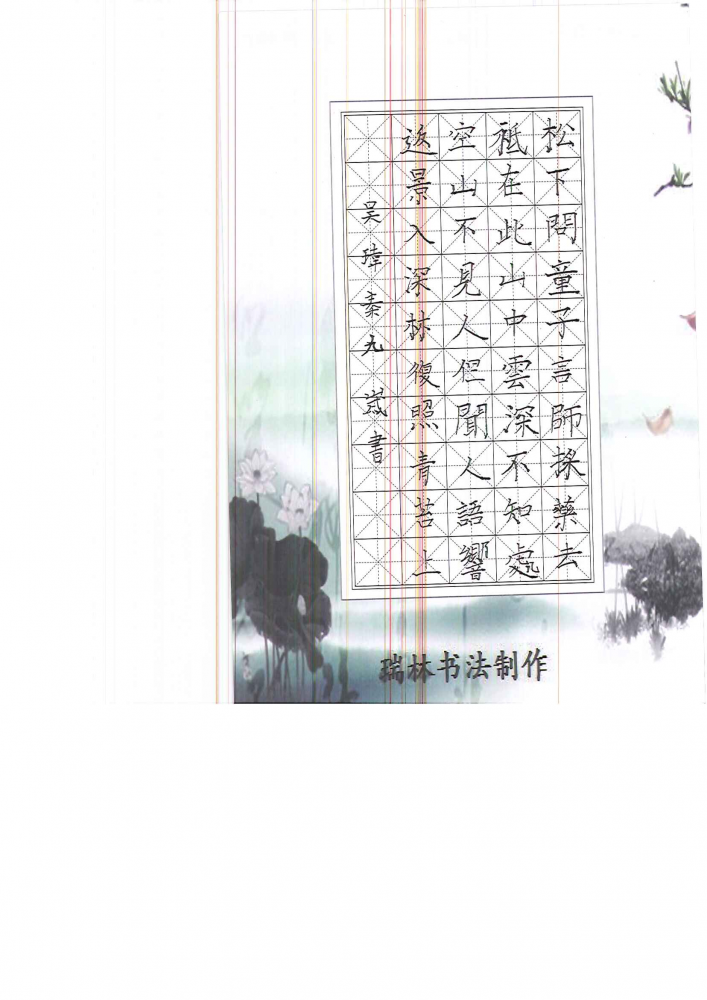 松下問童子言師採藥去
祗在此山中雲深不知處
空山不見人但聞人語響
返景入深林復照青苔上
吴瑋秦九嵗書
瑞林书法制作